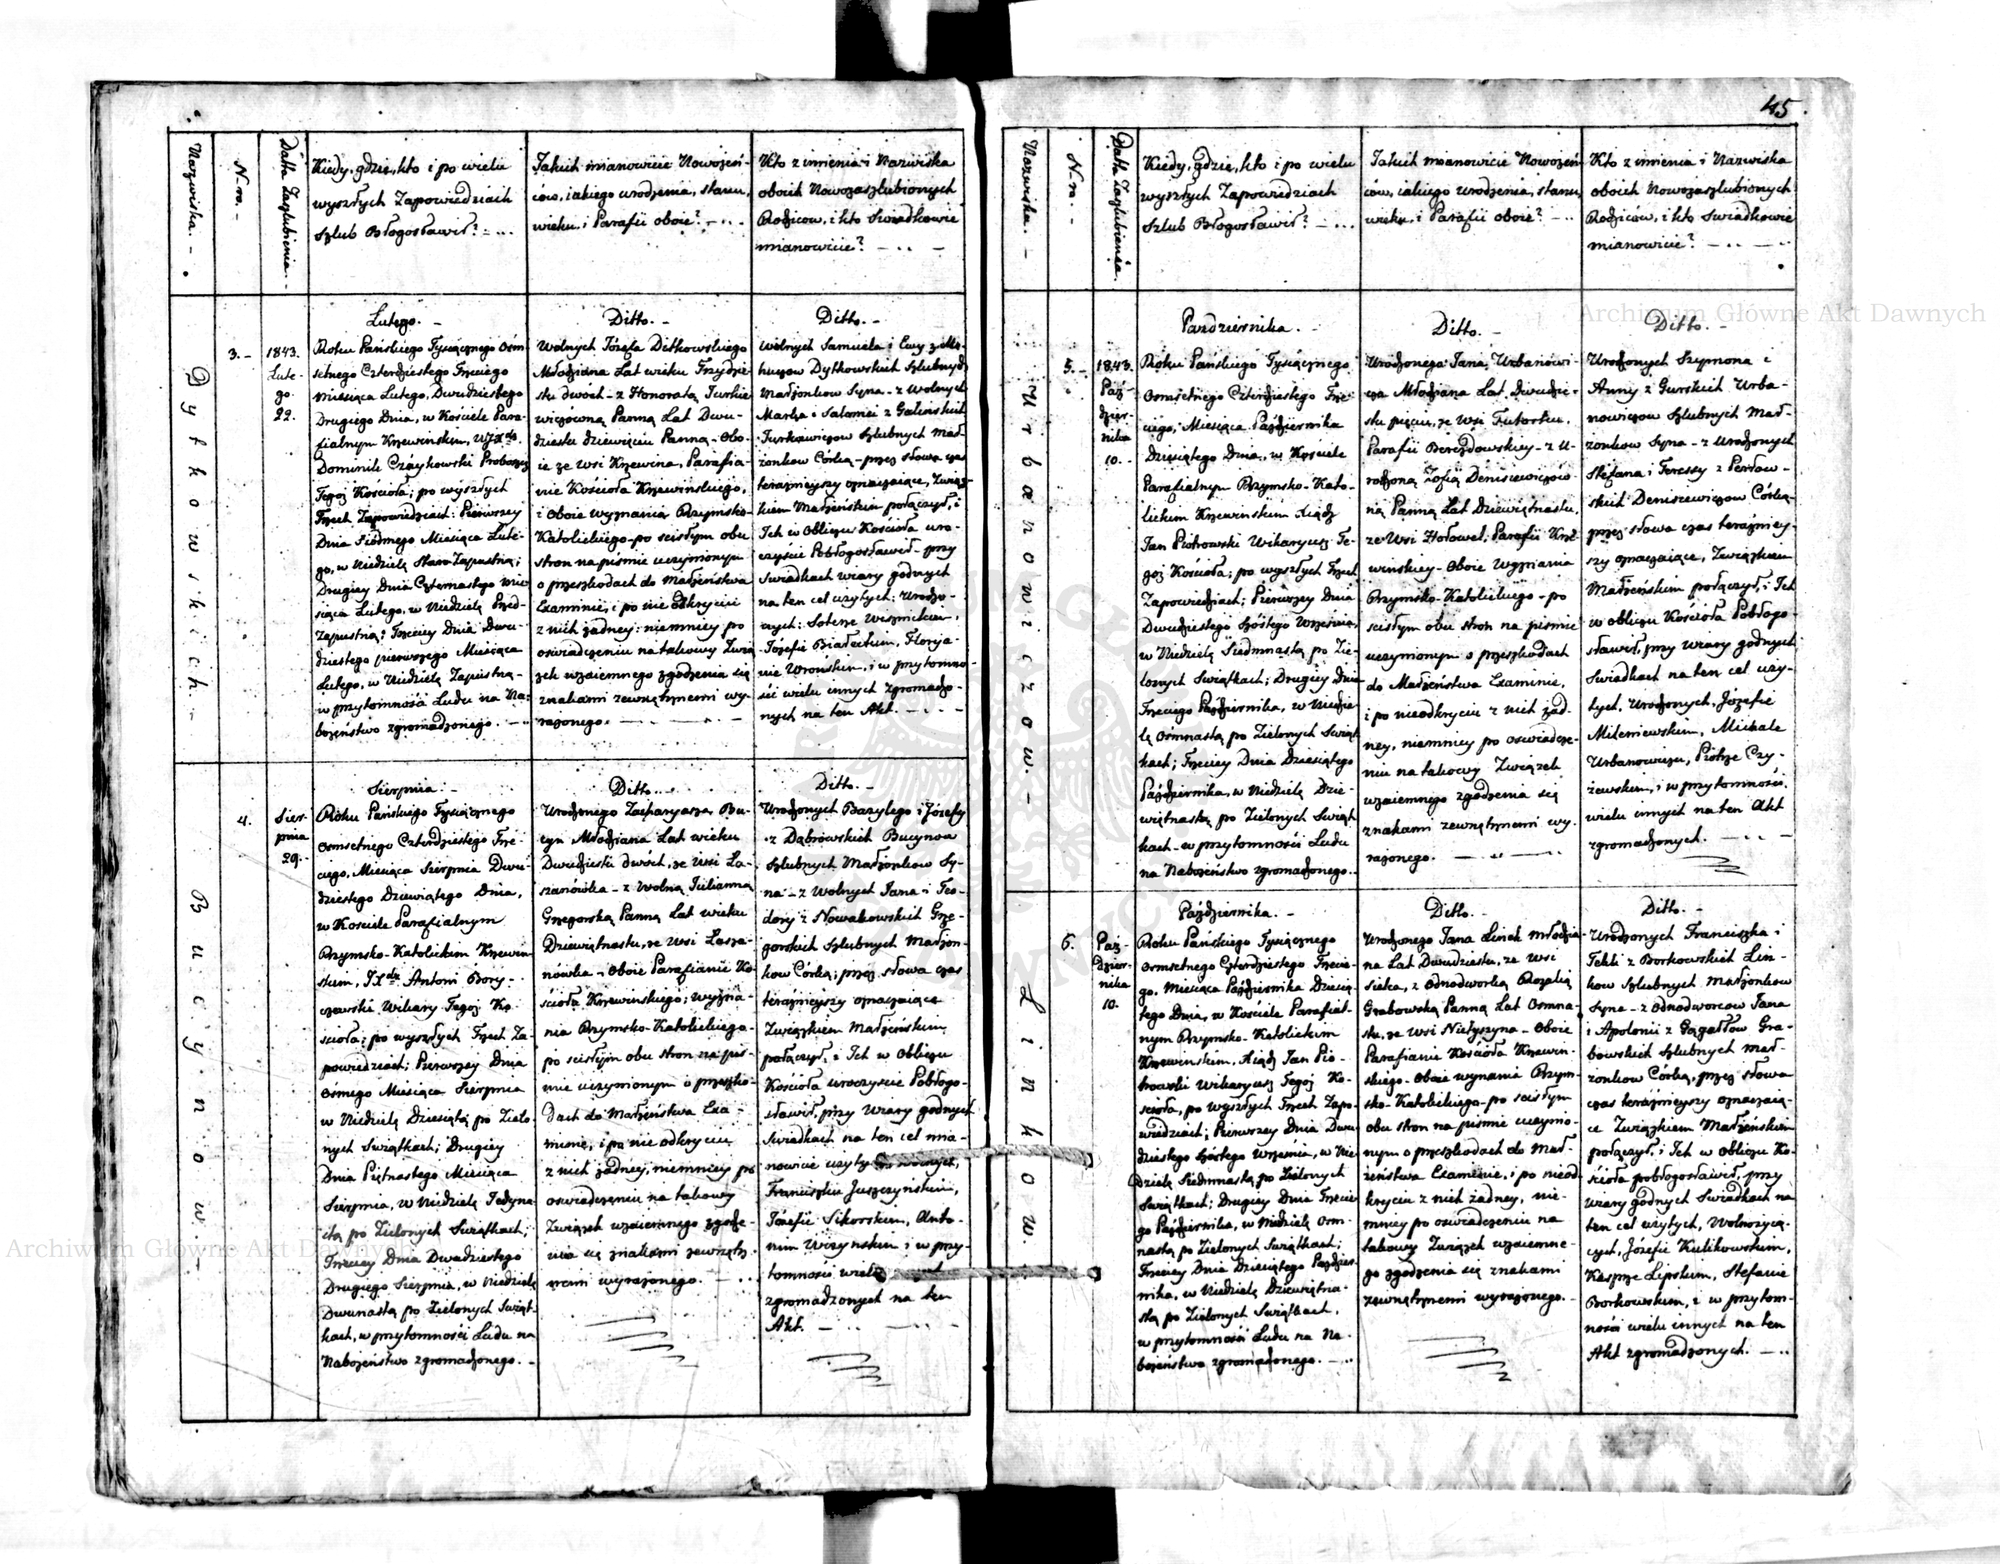 45.
Nazwiska. -
N-ro. -
Datta Zaszlubienia. -
Kiedy, gdzie, kto i po wielu
wyszłych Zapowiedziach
Szlub Błogosławił? - . . .
Jakich mianowicie Nowożeń-
ców, iakiego urodzenia, stanu,
wieku, i Parafii oboie? - . . -
Kto z imienia i Nazwiska
oboich Nowozaszlubionych
Rodziców, i kto Swiadkowie
mianowicie? - . . -
Dytkowskich. -
3. -
1843.
Lute-
go.
22.
Lutego. -
Roku Pańskiego Tysiącznego Ośm
setnego Czterdziestego Trzeciego
Miesiąca Lutego, Dwudziestego
Drugiego Dnia, w Kościele Para-
fialnym Krzewińskim,
Dominik Czaykowski Proboszcz
Tegoj Kościoła; po wyszłych
Trzech Zapowiedziach: Pierwszey
Dnia Siódmego Miesiąca Lute-
go, w Niedzielę Staro-Zapustną;
Drugiey Dnia Czternastego Mie
siąca Lutego, w Niedzielę Przed-
Zapustną; Trzeciey Dnia Dwu-
dziestego pierwszego Miesiąca
Lutego, w Niedzielę Zapustną-
w przytomności Ludu na Na-
bożeństwo zgromadzonego. -
Ditto. -
Wolnych Józefa Ditkowskiego
Młodziana Lat wieku Trzydzie-
stu dwóch - z Honoratą Turkie
wiczówną Panną Lat Dwu-
dziestu dziewięciu Panną - Obo-
ie ze Wsi Krzewina, Parafia-
nie Kościoła Krzewińskiego,
i Oboie Wyznania Rzymsko-
Katolickiego - po scisłym obu
stron na piśmie uczynionym
o przeszkodach do Małżeństwa
Examinie, i po nie odkryciu
z nich żadney: niemniey po
oswiadczeniu na takowy Zwią
zek wzaiemnego zgodzenia się
znakami zewnętrznemi wy-
rażonego. -
Ditto. -
Wolnych Samuela i Ewy z Mi-
Dytkowskich Szlubnych
Małżonkow Syna - z Wolnych
Marka i Salomei z Galinskich
Turkiewiczow Szlubnych Mał-
żonkow Córką - przez słowa czas
teraźnieyszy oznaczaiące, Związ-
kiem Małżeńskim połączył, i
Ich w Obliczu Kościoła uro-
czyście Pobłogosławił - przy
Swiadkach wiary godnych
na ten cel użytych: Urodzo-
nych:
Józefie Białeckim, Florja-
nie Wrońskim, i w przytomno-
ści wielu innych zgromadzo-
nych na ten Akt. -
Bucynow. -
4.
Sier-
pnia
29. -
Sierpnia. -
Roku Pańskiego Tysiącznego
Ośmsetnego Czterdziestego Trze-
ciego, Miesiąca Sierpnia Dwu-
dziestego Dziewiątego Dnia,
w Kościele Parafialnym
Rzymsko-Katolickim Krzewin-
skim, Antoni Bory-
czewski Wikary Tegoj Ko-
ścioła; po wyszłych Trzech Za
powiedziach; Pierwszey Dnia
Ósmego Miesiąca Sierpnia
w Niedzielę Dziesiątą po Zielo-
nych Swiątkach; Drugiey
Dnia Piętnastego Miesiąca
Sierpnia, w Niedzielę Jedyna-
stą po Zielonych Swiątkach;
Trzeciey Dnia Dwudziestego
Drugiego Sierpnia, w Niedzielę
Dwunastą po Zielonych Swiąt-
kach, w przytomności Ludu na
Nabożeństwo zgromadzonego. -
Ditto. -
Urodzonego Zacharyasza Bu-
cyn Młodziana Lat wieku
Dwudziestu dwóch, ze Wsi La-
szanówka - z Wolną Julianną
Grzegorską Panną Lat wieku
Dziewiętnastu, ze Wsi Lasza-
nówka - Oboie Parafianie Ko-
ścioła Krzewińskiego; wyzna-
nia Rzymsko-Katolickiego -
po scisłym obu stron na piś-
mie uczynionym o przeszko-
dach do Małżeństwa Exa-
minie, i po nie odkryciu
z nich żadney; niemniey po
oswiadczeniu na takowy
Związek wzaiemnego zgodze-
nia się znakami zewnętrz-
nemi wyrażonego. -
Ditto. -
Urodzonych Bazylego i Józefy
z Dąbrowskich Bucynow
Szlubnych Małżonkow Sy-
na - z Wolnych Jana i Teo-
dory z Nowakowskich Grze-
gorskich Szlubnych Małżon-
kow Córką; przez słowa czas
teraźnieyszy oznaczaiące
Związkiem Małżeńskim
połączył, i Ich w Obliczu
Kościoła uroczyście Pobłogo-
sławił, przy Wiary godnych
Swiadkach na ten cel mia-
nowicie
Franciszku Juszczyńskim,
Józefie Sikorskim, Anto-
nim i w przy-
tomności wielu
zgromadzonych na ten
Akt. -
Nazwiska. -
N-ro. -
Datta Zaszlubienia.
Kiedy, gdzie, kto i po wielu
wyszłych Zapowiedziach
Szlub Błogosławił? - . . .
Jakich mianowicie Nowożeń
ców, iakiego urodzenia, stanu,
wieku, i Parafii oboie? - . . -
Kto z imienia i Nazwiska
oboich Nowozaszlubionych
Rodziców, i kto Swiadkowie
mianowicie? - . . -
Urbanowiczow. -
5. -
1843.
Paź-
dzier-
nika
10. -
Pazdziernika. -
Roku Pańskiego Tysiącznego
Ośmsetnego Czterdziestego Trze-
ciego, Miesiąca Października
Dziesiątego Dnia, w Kościele
Parafialnym Rzymsko-Kato-
lickim Krzewinskim Xiądz
Jan Piotrowski Wikaryusz Te-
goj Kościoła; po wyszłych Trzech
Zapowiedziach; Pierwszey Dnia
Dwudziestego Szóstego Września,
w Niedzielę Siedmnastą po Zie-
lonych Swiątkach; Drugiey Dnia
Trzeciego Października, w Niedzie-
lę Ośmnastą po Zielonych Swiąt
kach; Trzeciey Dnia Dziesiątego
Października, w Niedzielę Dzie-
więtnastą po Zielonych Swiąt
kach - w przytomności Ludu
na Nabożeństwo zgromadzonego. -
Ditto. -
Urodzonego Jana Urbanowi-
cza Młodziana Lat Dwudzie-
stu pięciu, ze Wsi Futorku,
Parafii Berezdowskiey - z U-
rodzoną Zofią Denisiewiczów-
ną Panną Lat Dziewiętnastu,
ze Wsi Hołowel, Parafii Krze
wińskiey - Oboie Wyznania
Rzymsko-Katolickiego - po
scisłym obu stron na piśmie
uczynionym o przeszkodach
do Małżeństwa Examinie,
i po nieodkryciu z nich żad-
ney, niemniey po oswiadcze-
niu na takowy Związek
wzaiemnego zgodzenia się
znakami zewnętrznemi wy-
rażonego. -
Ditto. -
Urodzonych Szymona i
Anny z Gurskich Urba-
nowiczow Szlubnych Mał-
żonkow Syna - z Urodzonych
Stefana i Teressy z Perłow-
skich Denisiewiczow Córką -
przez słowa czas teraźniey-
szy oznaczaiące, Związkiem
Małżeńskim połączył, i Ich
w obliczu Kościoła Pobłogo-
sławił, przy Wiary godnych
Swiadkach na ten cel uży-
tych, Urodzonych, Józefie
Mileniewskim, Michale
Urbanowiczu, Piotrze Czy-
żewskim, i w przytomności
wielu innych na ten Akt
zgromadzonych. -
Linkow. -
6.
Paź-
dzier-
nika
10.
Października. -
Roku Pańskiego Tysiącznego
Ośmsetnego Czterdziestego Trzecie-
go, Miesiąca Października Dziesią-
tego Dnia, w Kościele Parafial-
nym Rzymsko-Katolickim
Krzewinskim, Xiądz Jan Pio-
trowski Wikaryusz Tegoj Ko-
ścioła, po wyszłych Trzech Zapo-
wiedziach; Pierwszey Dnia Dwu-
dziestego Szóstego Września, w Nie
dzielę Siedmnastą po Zielonych
Swiątkach; Drugiey Dnia Trzecie-
go Października, w Niedzielę Ośm-
nastą po Zielonych Swiątkach;
Trzeciey Dnia Dziesiątego Paździer-
nika, w Niedzielę Dziewiętna-
stą po Zielonych Swiątkach,
w przytomności Ludu na Na-
bożeństwo zgromadzonego. -
Ditto. -
Urodzonego Jana Linek Młodzia-
na Lat Dwudziestu, ze Wsi
Siekа, z Odnodworką Rozalią
Grabowską Panną Lat Ośmna-
stu, ze Wsi Nietyszyna - Oboie
Parafianie Kościoła Krzewin-
skiego - Oboie wyznania Rzym-
sko-Katolickiego - po scisłym
obu stron na piśmie uczynio-
nym o przeszkodach do Mał-
żeństwa Examinie, i po nieod
kryciu z nich żadney, nie-
mniey po oswiadczeniu na
takowy Związek wzaiemne-
go zgodzenia się znakami
zewnętrznemi wyrażonego. -
Ditto. -
Urodzonych Franciszka i
Tekli z Borkowskich Lin-
kow Szlubnych Małżonkow
Syna - z Odnodworcow Jana
i Apolonii z Gra-
bowskich Szlubnych Mał-
żonkow Córką, przez słowa
czas teraźnieyszy oznaczaią-
ce Związkiem Małżeńskim
połączył, i Ich w Obliczu Ko-
ścioła pobłogosławił, przy
wiary godnych Swiadkach na
ten cel użytych,
Józefie Kulikowskim,
Kasprze Lipskim, Stefanie
Borkowskim, i w przytom-
ności wielu innych na ten
Akt zgromadzonych. -
Archiwum Główne Akt Dawnych
Archiwum Główne Akt Dawnych